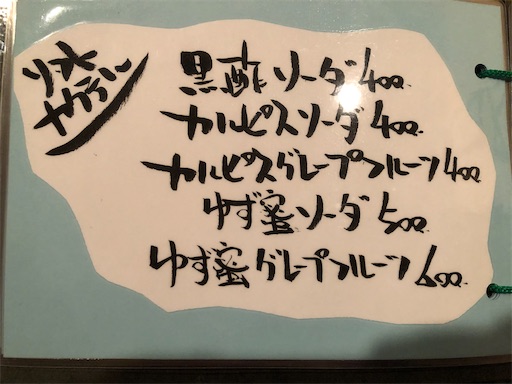 黒酢ソーダ400.
カルピスソーダ400.
カルピスグレープフルーツ400.
ゆず蜜ソーダ500.
ゆず蜜グレープフルーツ600.